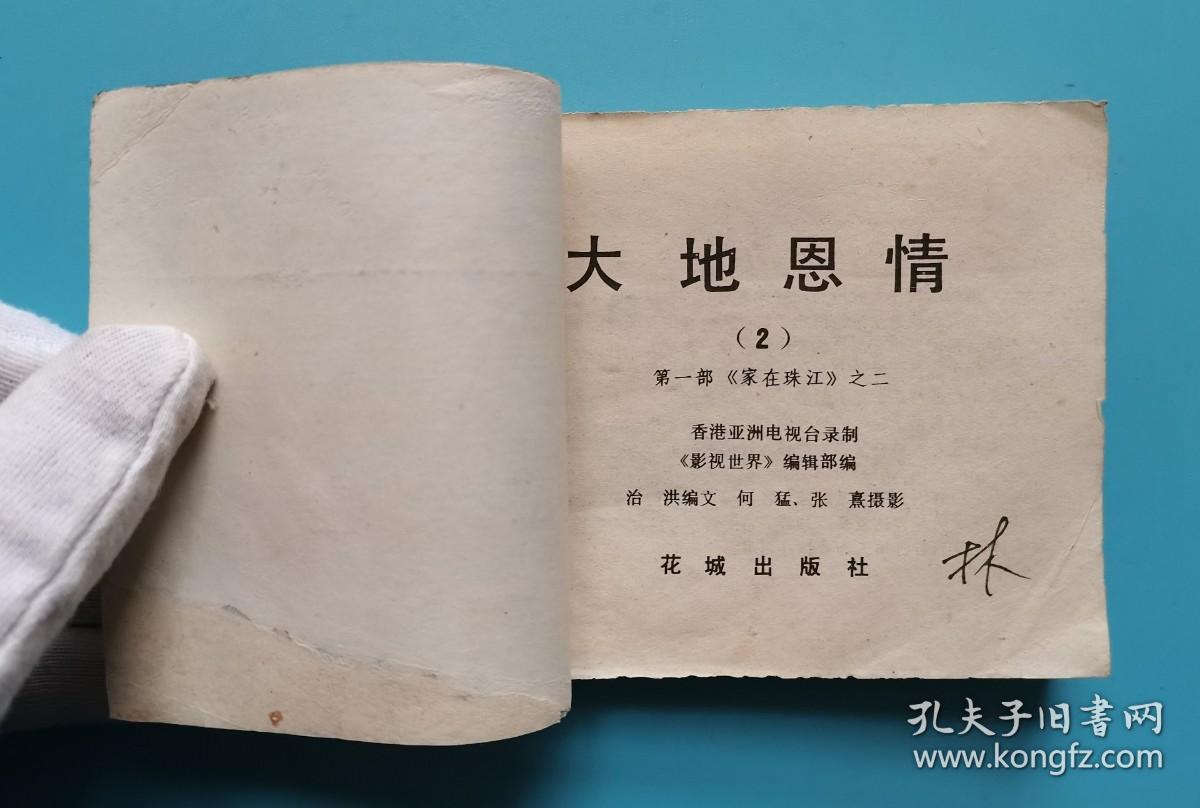 大地恩情
（2）
第一部《家在珠江》之二
香港亚洲电视台录制
《影视世界》编辑部编
治 洪编文 何 猛、张 熹摄影
花城出版社
林
孔夫子旧書网
www.kongfz.com